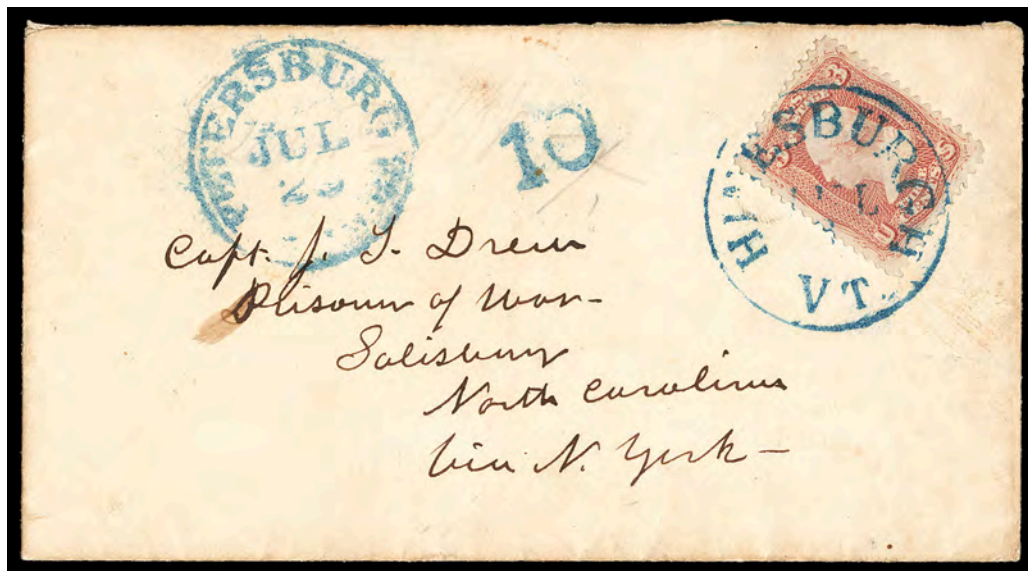 PETERSBURG
JUL
10
HINESBURGH
VT.
Capt. J. S. Drew
Prisoner of War -
Salisbury
North Carolina
Via N. York -